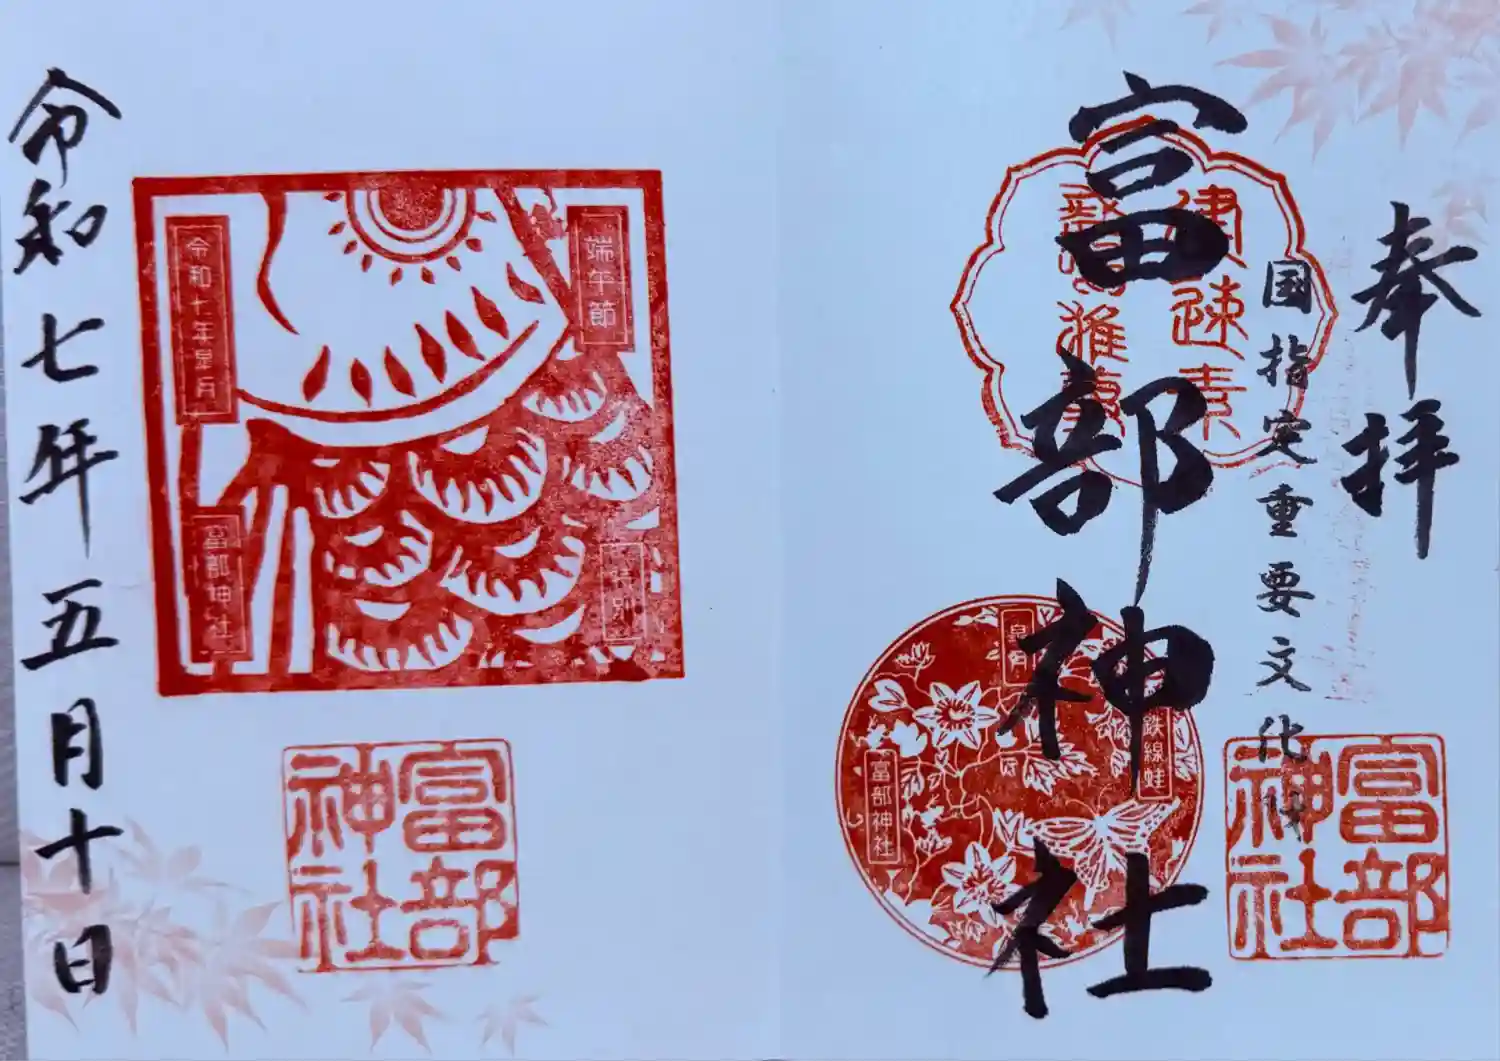 奉拝
国指定重要文化財
富部神社
建速素
皐月
鉄線蛙
富部神社
富部神社
端午節
特別
令和七年皐月
富部神社
富部神社
令和七年五月十日